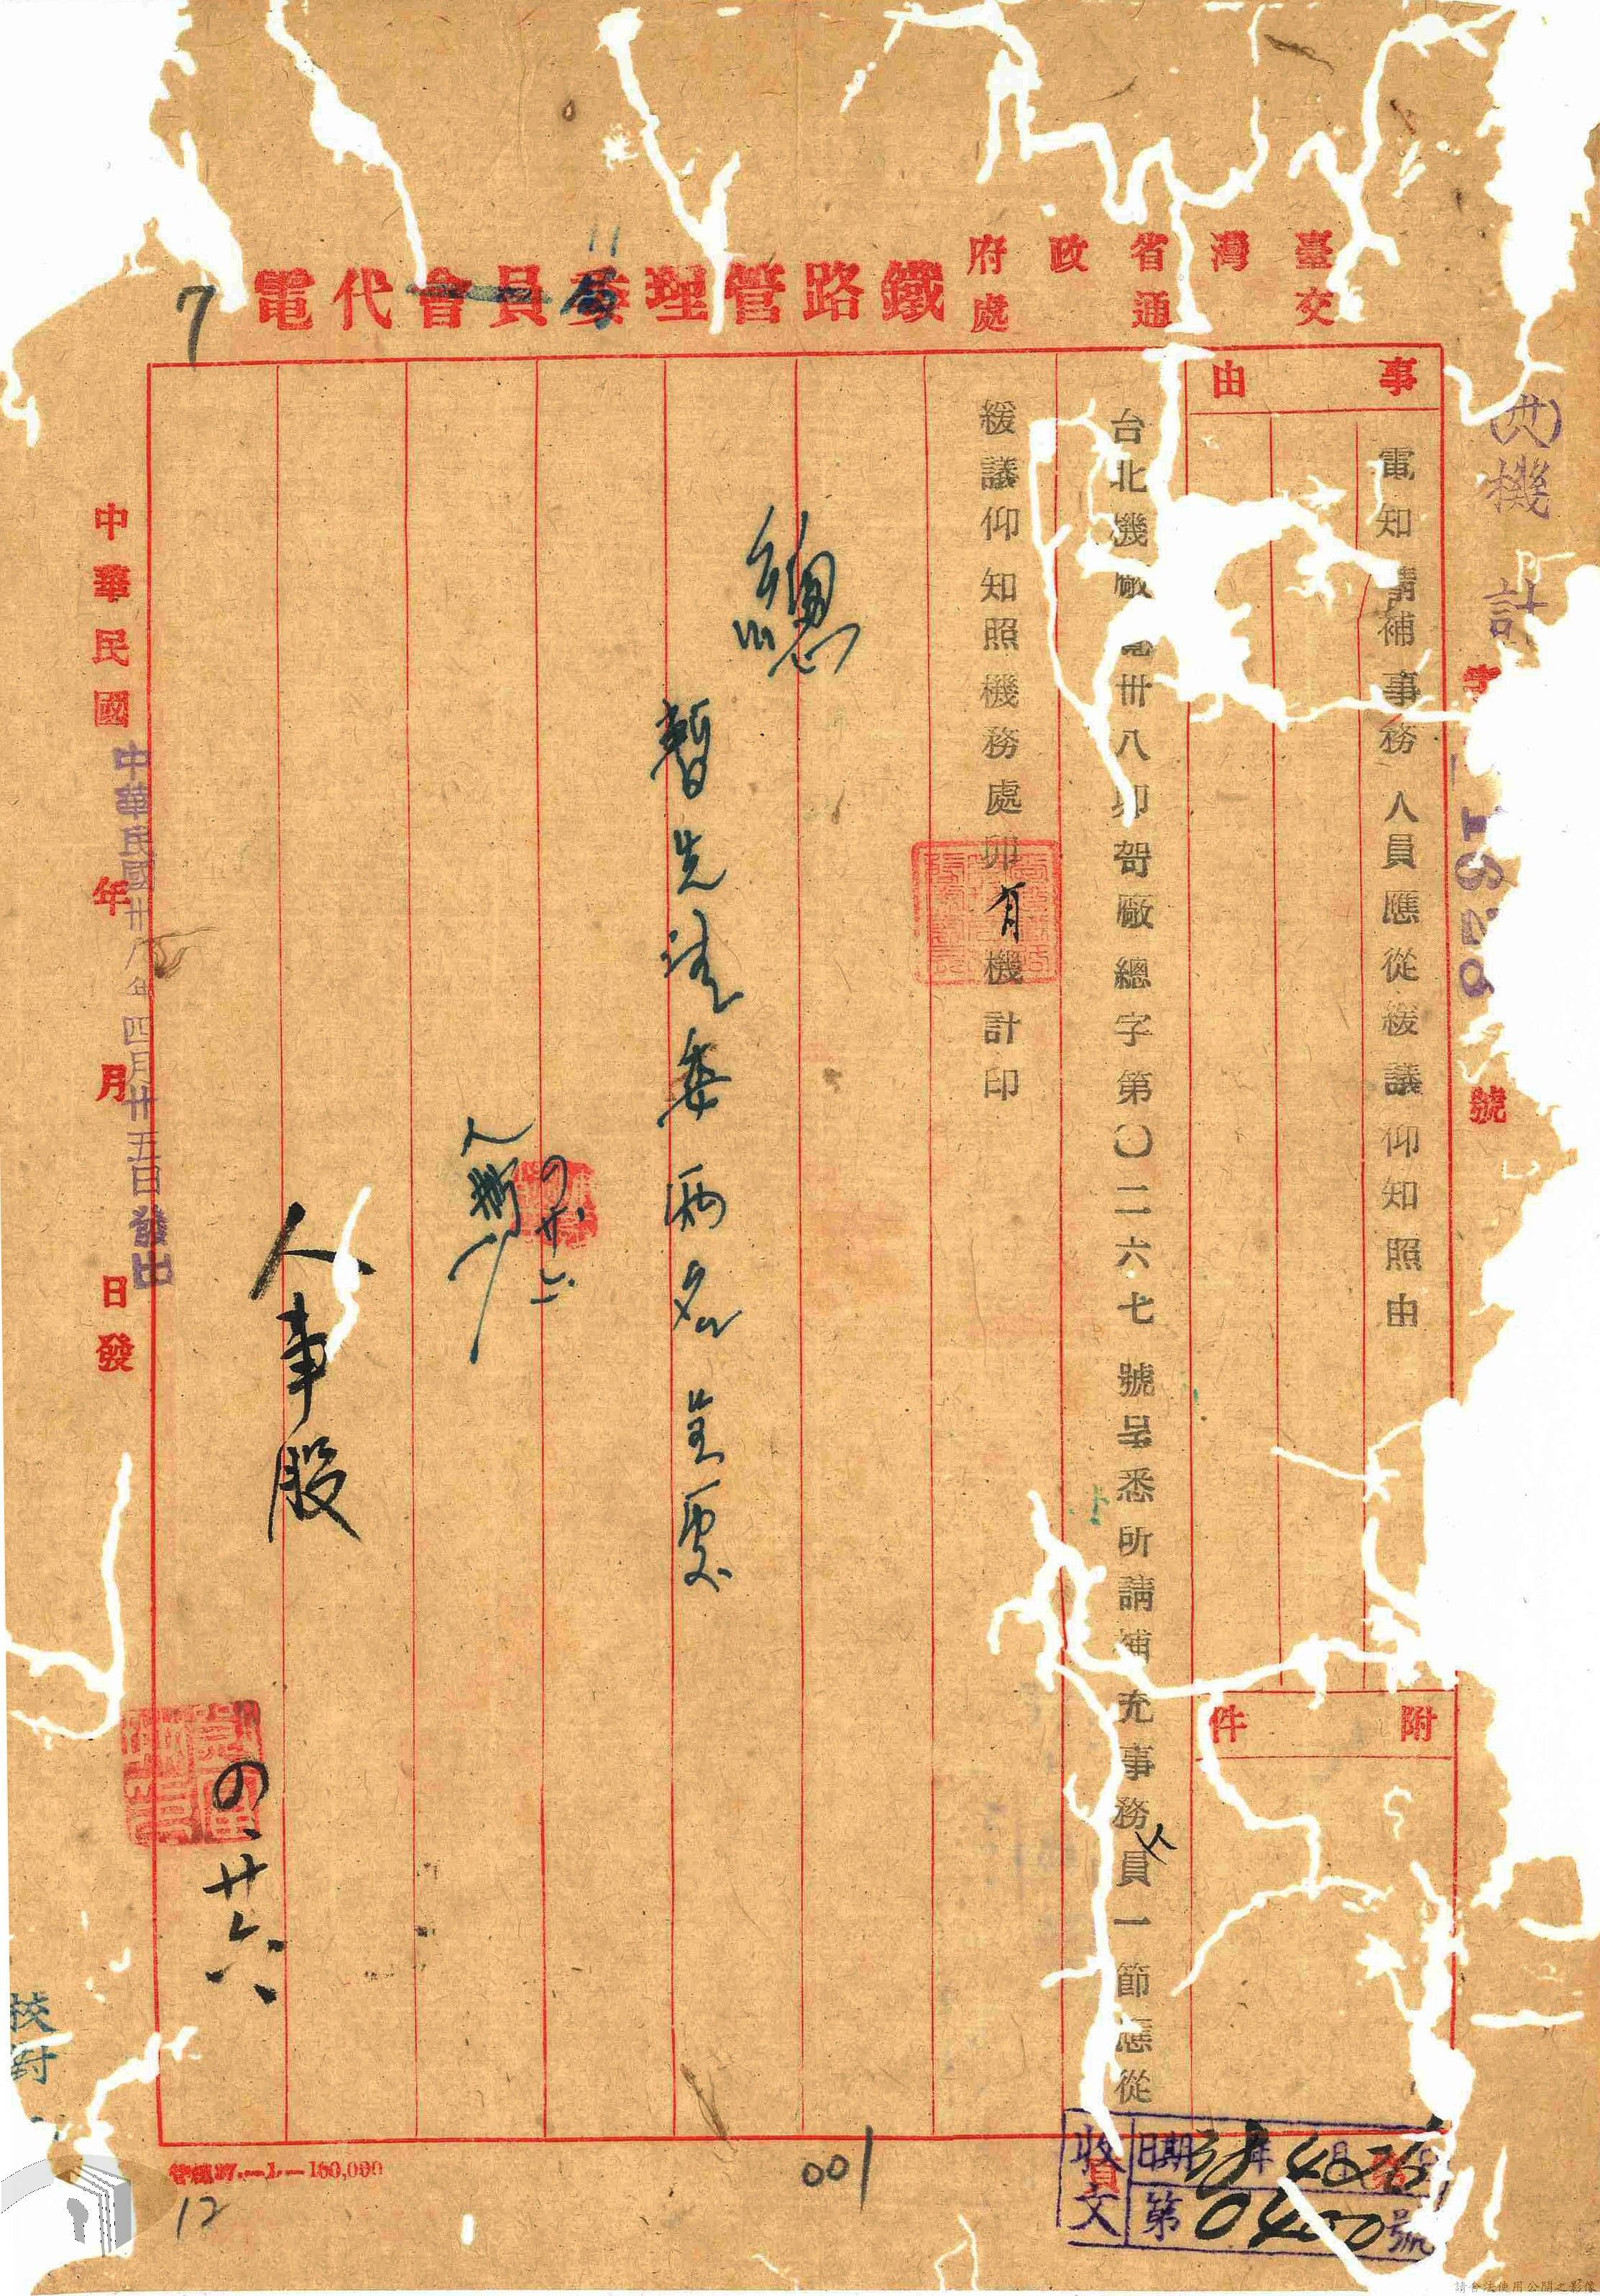 臺灣省政府
交通處
鐵路管理委員會代電
局
7
(卅八)機計字
號
事由
電知請補事務人員應從緩議仰知照由
附件
台北機廠卅八卯哿廠總字第〇二六七號呈悉所請補充事務員一節應從
人
緩議仰知照機務處卯有機計印
總
暫先請委兩名
人事股
の、廿六、
中華民國 年 月 日發
中華民國卅八年四月廿五日發出
校對
收文
日期 38年4月26日
第0400號
001
12
管理37.—1.—100,000
請合法使用公開之影像